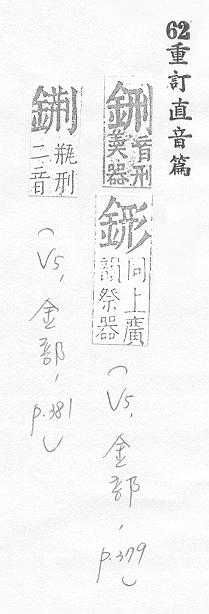 62重訂直音篇
鉶
音刑
羹器
同上廣
韻祭器
(V5,金部,p.379)
瓶刑
二音
(V5,金部,p.381)